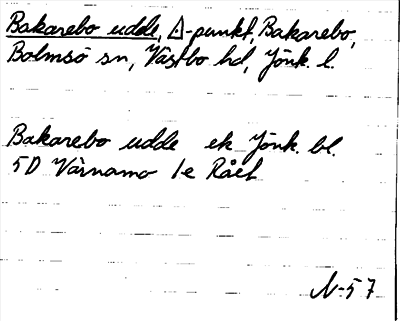 Bakarebo udde, Δ-punkt, Bakarebo,
Bolmsö sn, Västbo hd, Jönk. l.
Bakarebo udde ek Jönk. bl.
5D Värnamo 1e Råel
N-57